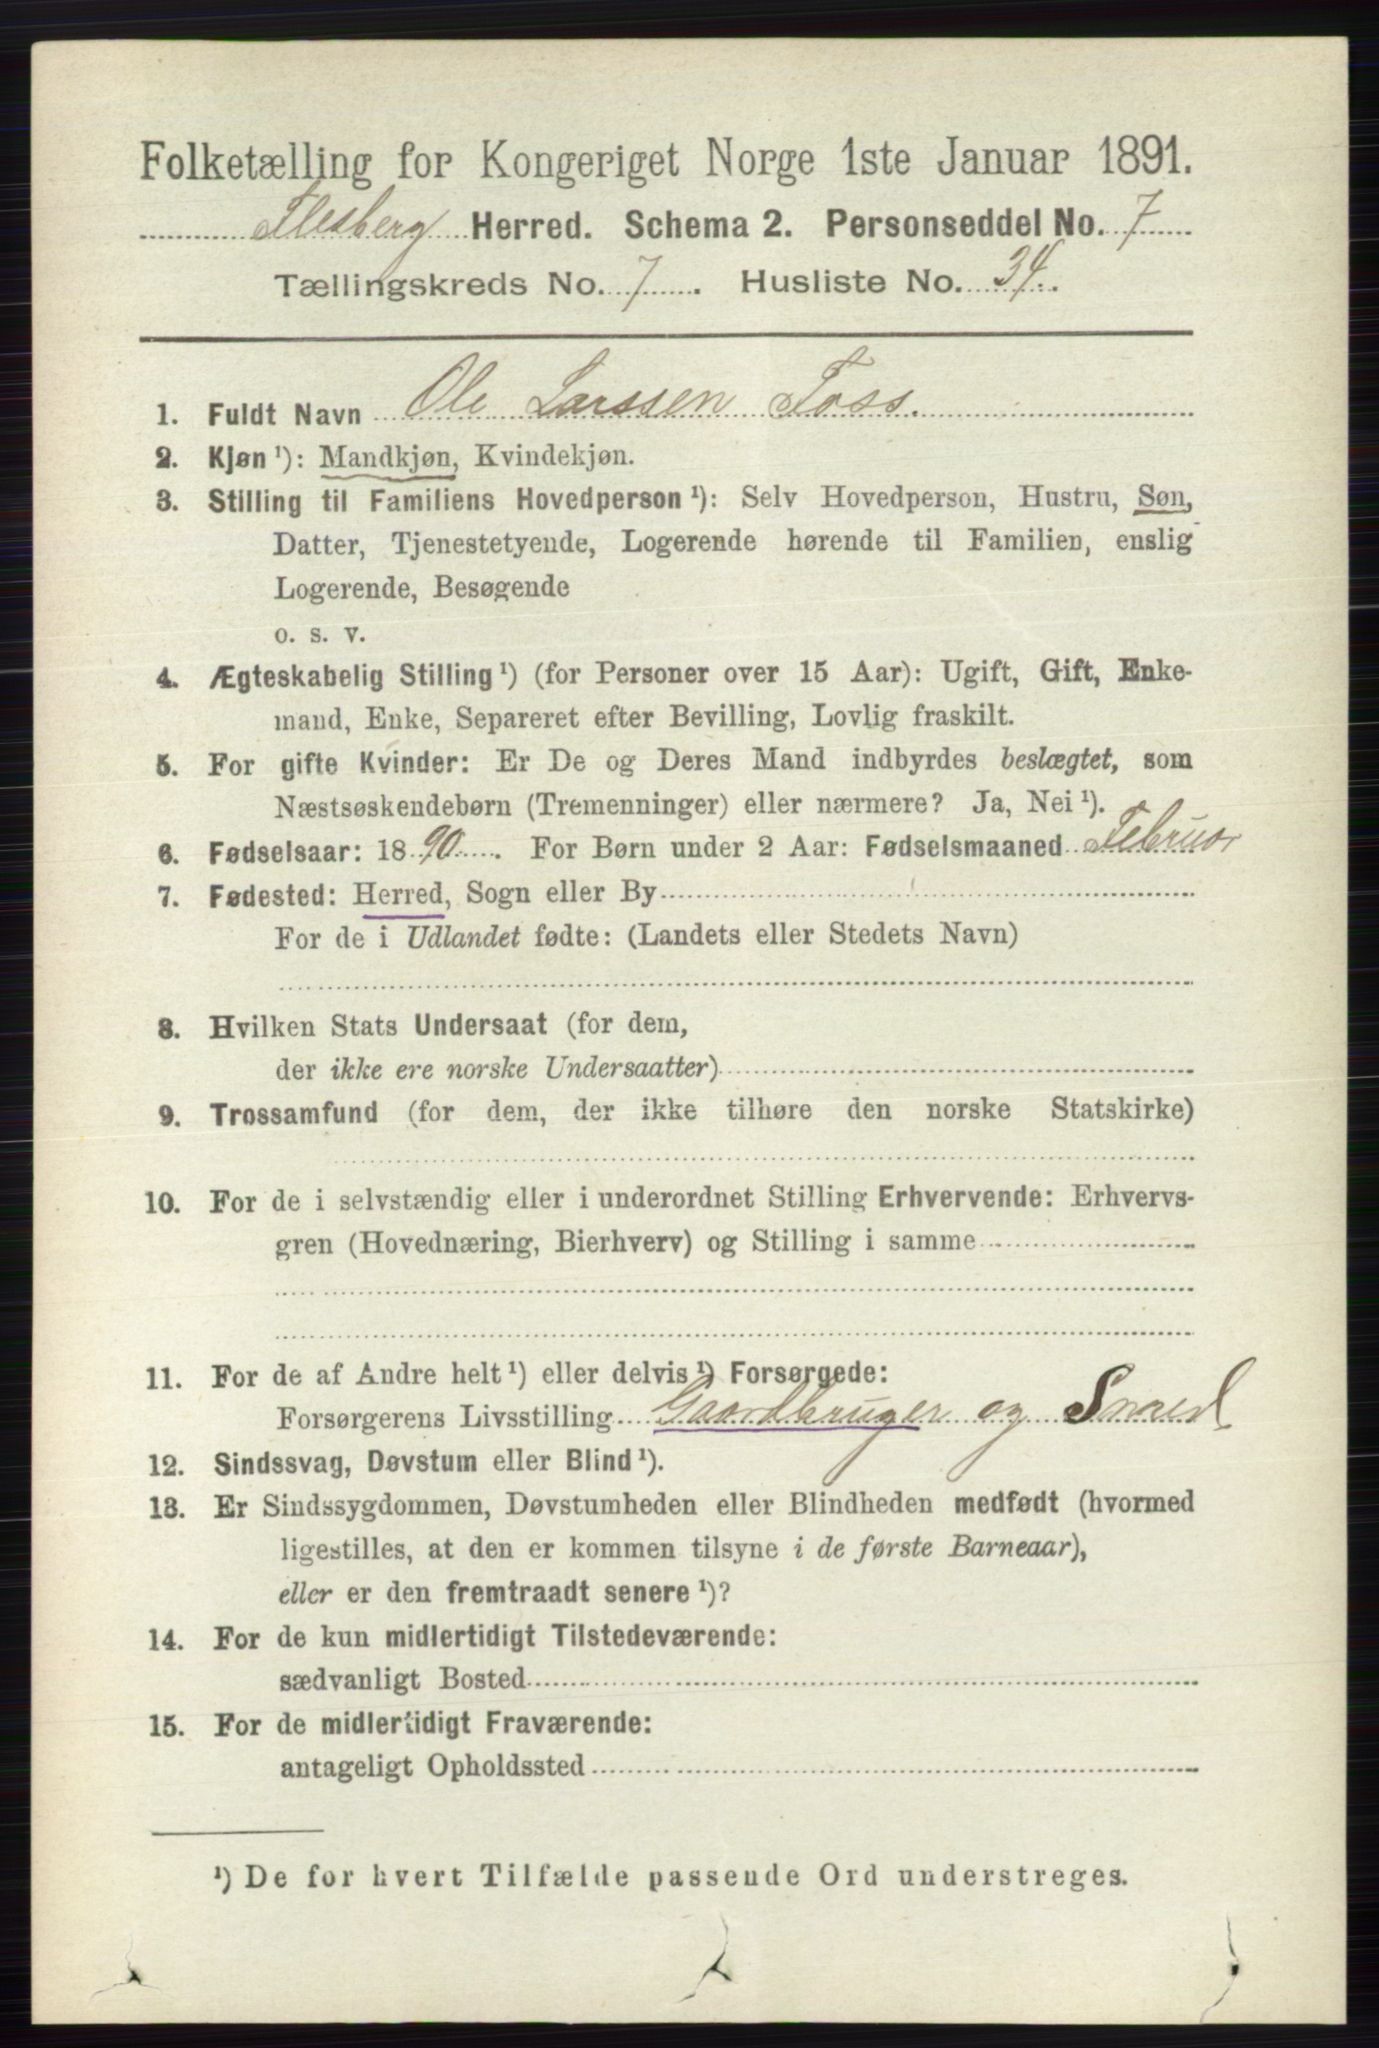 Folketælling for Kongeriget Norge 1ste Januar 1891.
Flesberg Herred. Schema 2. Personseddel No. 7
Tællingskreds No. 7. Husliste No. 34.
1. Fuldt Navn Ole Larssen Foss.
2. Kjøn ¹): Mandkjøn, Kvindekjøn.
3. Stilling til Familiens Hovedperson ¹): Selv Hovedperson, Hustru, Søn,
Datter, Tjenestetyende, Logerende hørende til Familien, enslig
Logerende, Besøgende
o. s. v.
4. Ægteskabelig Stilling ¹) (for Personer over 15 Aar): Ugift, Gift, Enke-
mand, Enke, Separeret efter Bevilling, Lovlig fraskilt.
5. For gifte Kvinder: Er De og Deres Mand indbyrdes beslægtet, som
Næstsøskendebørn (Tremenninger) eller nærmere? Ja, Nei ¹).
6. Fødselsaar: 1890. For Børn under 2 Aar: Fødselsmaaned Februar
7. Fødested: Herred, Sogn eller By
For de i Udlandet fødte: (Landets eller Stedets Navn)
8. Hvilken Stats Undersaat (for dem,
der ikke ere norske Undersaatter)
9. Trossamfund (for dem, der ikke tilhøre den norske Statskirke)
10. For de i selvstændig eller i underordnet Stilling Erhvervende: Erhvervs-
gren (Hovednæring, Bierhverv) og Stilling i samme
11. For de af Andre helt ¹) eller delvis ¹) Forsørgede:
Forsørgerens Livsstilling Gaardbruger og Smed
12. Sindssvag, Døvstum eller Blind ¹).
13. Er Sindssygdommen, Døvstumheden eller Blindheden medfødt (hvormed
ligestilles, at den er kommen tilsyne i de første Barneaar),
eller er den fremtraadt senere ¹)?
14. For de kun midlertidigt Tilstedeværende:
sædvanligt Bosted
15. For de midlertidigt Fraværende:
antageligt Opholdssted
¹) De for hvert Tilfælde passende Ord understreges.